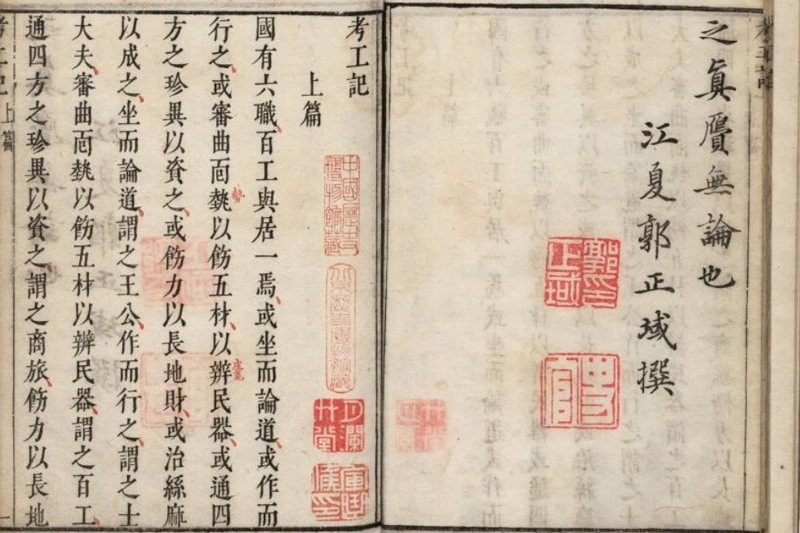 之真贗無論也
江夏郭正域撰
郭印正域
史官
考工記
上篇
中國歷史博物館藏
國有六職百工與居一焉或坐而論道或作而
行之或審曲面埶以飭五材以辨民器或通四
方之珍異以資之或飭力以長地財或治絲麻
以成之坐而論道謂之王公作而行之謂之士
大夫審曲面埶以飭五材以辨民器謂之百工
通四方之珍異以資之謂之商旅飭力以長地
考工記上篇